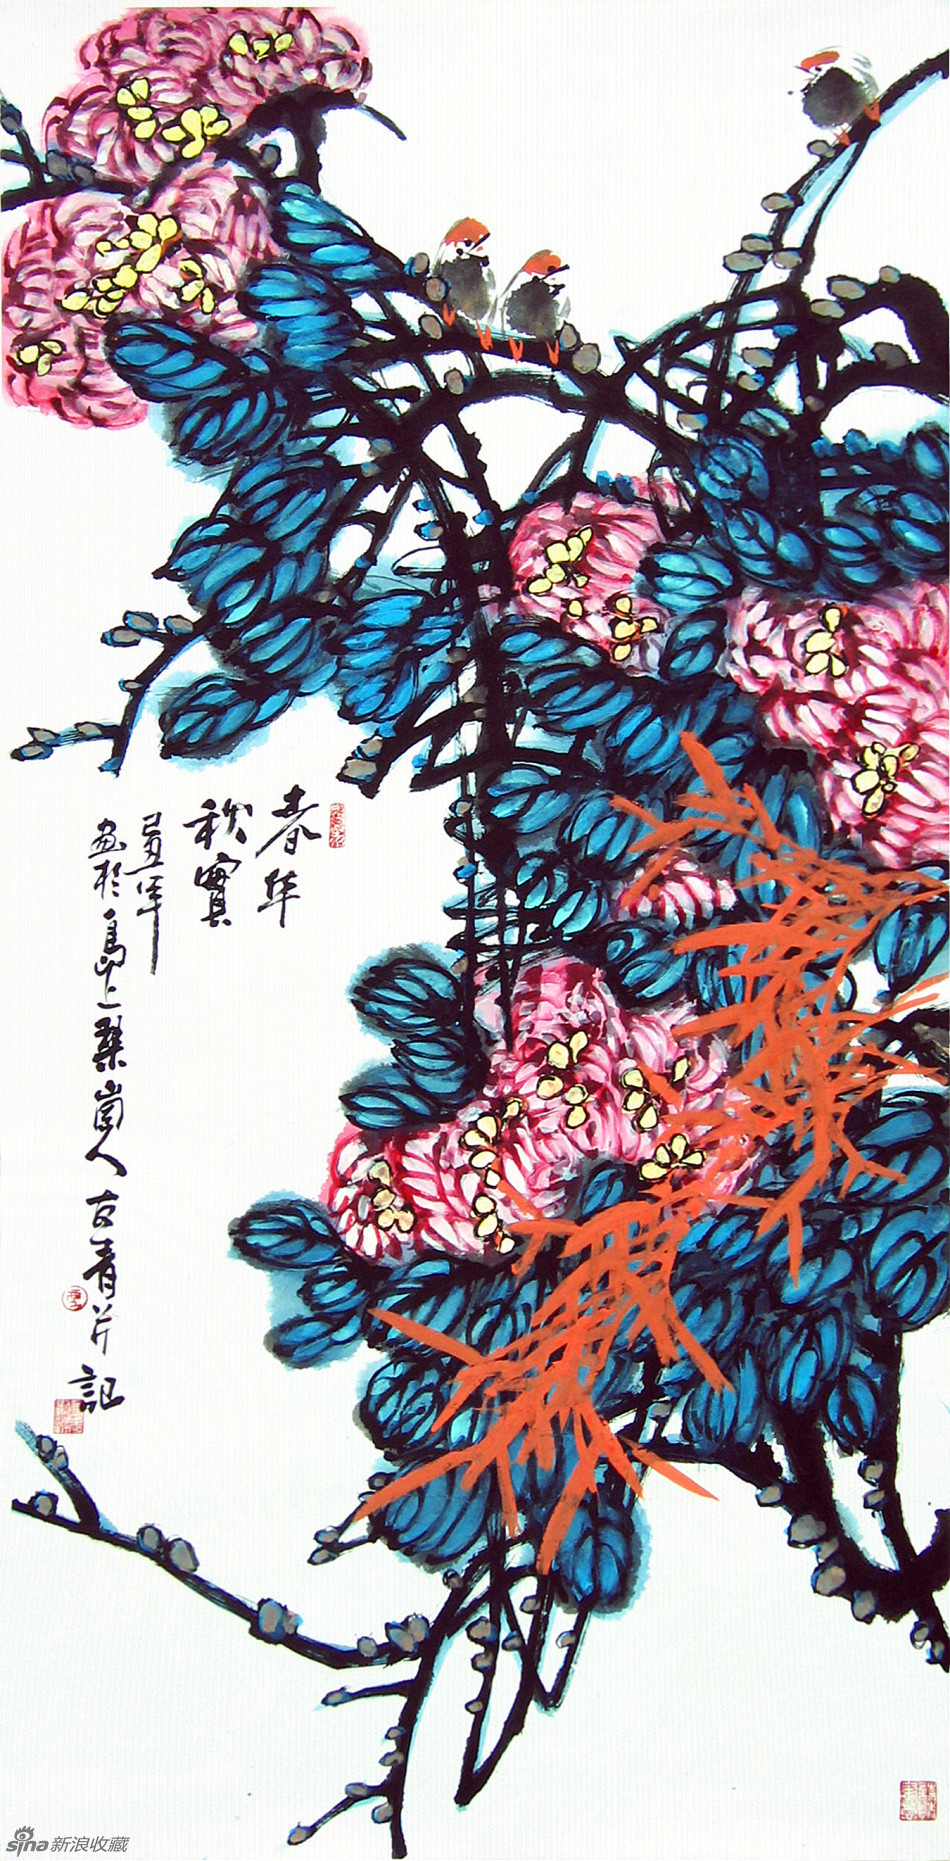 春华
秋實
年
画於島上琴崗人古青并記
sina新浪收藏